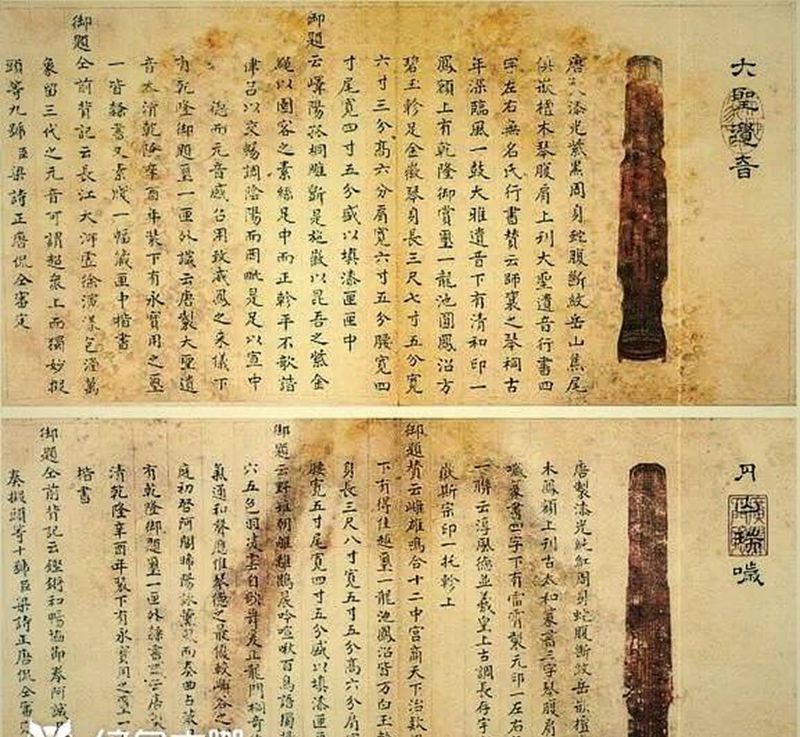 大聖遺音
唐漆光紫黑周身蛇腹斷紋岳山焦尾
俱嵌檀木琴腹肩上刊大聖遺音行書四
字左右無名氏行書贊云師襄之琴祠古
年深臨風一鼓大雅遺音下有清和印一
鳳額上有乾隆御賞璽一龍池圓鳳沼方
碧玉軫足金徽琴身長三尺七寸五分寬
六寸三分高六分肩寬六寸五分腰寬四
寸尾寬四寸五分盛以填漆匣匣中
御題云嶧陽孤桐雕斷是施徽以昆吾之紫金
繩以園客之素絲足中而正軫平不欹諧
律呂以交暢調陰陽而罔是足以宣中
德而元音感召用致威鳳之來儀下
有乾隆御題璽一匣外識云唐製大聖遺
音大清乾隆辛酉年裝下有永寶用之璽
一皆隸書又素牋一幅藏匣中楷書
御題仝前背記云長江大河雲徐演漾包涵萬
象留三代之元音可謂超衆上而獨妙擬
頭等九號臣梁詩正唐侃仝審定
丹山瑞噦
唐製漆光純紅周身蛇腹斷紋岳嵌檀
木鳳額上刊古太和篆書三字琴腹肩
噦篆書四字下有雷霄製元印一左右
一聯云淳風德並羲皇上古調長存字
徽斯宗印一托軫上
御題贊云雌雄鳴合十二中宮商天下治歟
下有得佳趣璽一龍池鳳沼皆方白玉軫
身長三尺八寸寬五寸五分高六分肩
腰寬五寸尾寬四寸五分盛以填漆匣
御題云野雉朝雊鵲晨吟喧啾百鳥語獨
六五色羽凌雲自舞爰止龍門桐奇
氣通和聲應惟琴德之最優較嶰谷之
庭初啓阿閣晞陽詠薰風而奏曲占
有乾隆御題璽一匣外隸書識云唐
清乾隆辛酉年裝下有永寶用之璽一
楷書
御題仝前背記云鏗鏘和暢協御奏阿
奏擬頭等十號臣梁詩正唐侃仝審